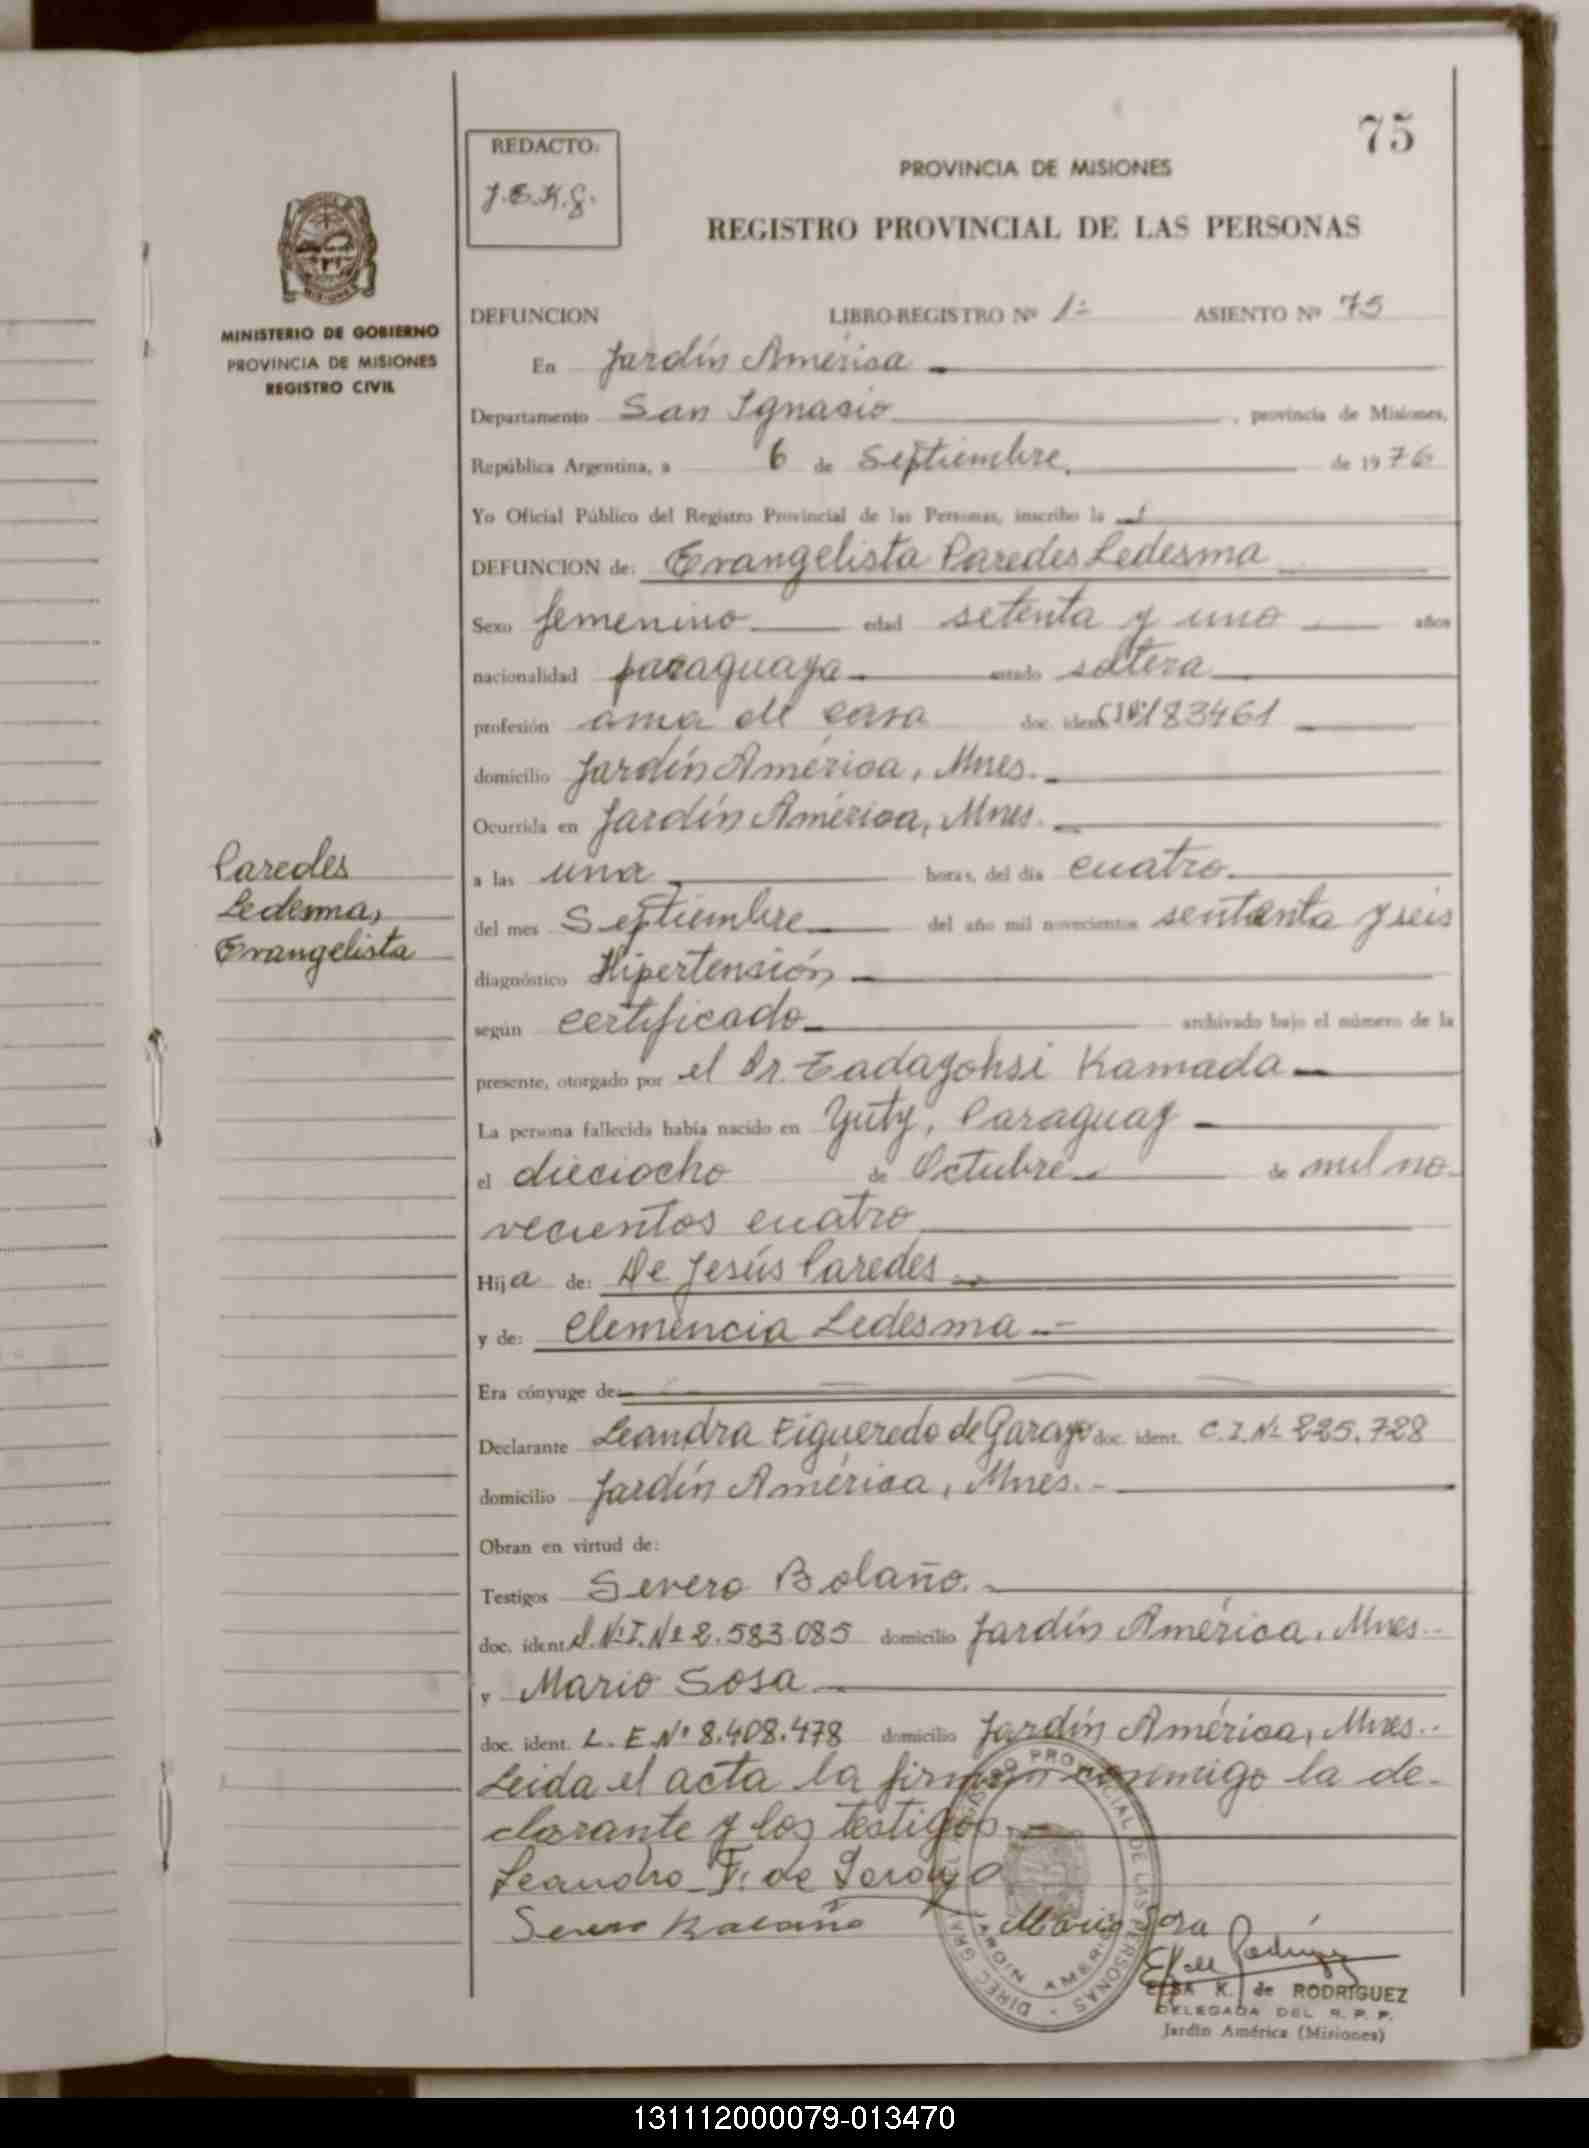 75
REDACTO:
J.E.K.G.
PROVINCIA DE MISIONES
REGISTRO PROVINCIAL DE LAS PERSONAS
MISIONES
MINISTERIO DE GOBIERNO
PROVINCIA DE MISIONES
REGISTRO CIVIL
DEFUNCION LIBRO-REGISTRO Nº 1º ASIENTO Nº 75
En Jardín América
Departamento San Ignacio, provincia de Misiones,
República Argentina, a 6 de Septiembre. de 1976
Yo Oficial Público del Registro Provincial de las Personas, inscribo la
DEFUNCION de: Evangelista Paredes Ledesma
Sexo femenino edad setenta y uno años
nacionalidad paraguaya estado soltera
profesión ama de casa doc. ident. 183461
domicilio Jardín América, Mnes.
Ocurrida en Jardín América, Mnes.
a las una horas, del día cuatro
del mes Septiembre del año mil novecientos sententa y seis
diagnóstico Hipertensión
según certificado archivado bajo el número de la
presente, otorgado por el Dr. Tadayohsi Kamada
La persona fallecida había nacido en Yuty, Paraguay
el dieciocho de Octubre de mil no-
vecientos cuatro
Hija de: De Jesús Paredes
y de: Clemencia Ledesma
Era cónyuge de:
Declarante Leandra Figueredo de Garayo doc. ident. C.I.Nº 225.728
domicilio Jardín América, Mnes.
Obran en virtud de:
Testigos Severo Bolaño.
doc. ident. D.N.I.Nº 2.583.085 domicilio Jardín América, Mnes.
y Mario Sosa
doc. ident. L.E.Nº 8.408.478 domicilio Jardín América, Mnes.
Leida el acta la firman conmigo la de-
clarante y los testigos.
Leandra F. de Garayo
Severo Bolaño Mario Sosa
Paredes
Ledesma,
Evangelista
DIREC. GRAL. DEL REGISTRO PROVINCIAL DE LAS PERSONAS
JARDIN AMERICA
ELSA K. de RODRIGUEZ
DELEGADA DEL R. P. P.
Jardín América (Misiones)
131112000079-013470